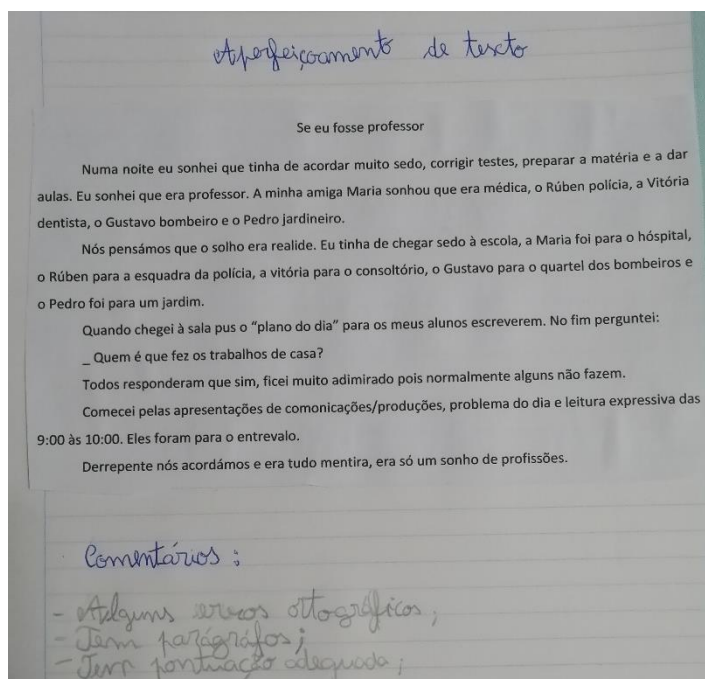 Aperfeiçoamento de texto
Se eu fosse professor
Numa noite eu sonhei que tinha de acordar muito sedo, corrigir testes, preparar a matéria e a dar
aulas. Eu sonhei que era professor. A minha amiga Maria sonhou que era médica, o Rúben polícia, a Vitória
dentista, o Gustavo bombeiro e o Pedro jardineiro.
Nós pensámos que o solho era realide. Eu tinha de chegar sedo à escola, a Maria foi para o hóspital,
o Rúben para a esquadra da polícia, a vitória para o consoltório, o Gustavo para o quartel dos bombeiros e
o Pedro foi para um jardim.
Quando chegei à sala pus o “plano do dia” para os meus alunos escreverem. No fim perguntei:
_ Quem é que fez os trabalhos de casa?
Todos responderam que sim, ficei muito adimirado pois normalmente alguns não fazem.
Comecei pelas apresentações de comonicações/produções, problema do dia e leitura expressiva das
9:00 às 10:00. Eles foram para o entrevalo.
Derrepente nós acordámos e era tudo mentira, era só um sonho de profissões.
Comentários :
- Alguns erros ortográficos ;
- Tem parágráfos ;
- Tem pontuação adequada ;